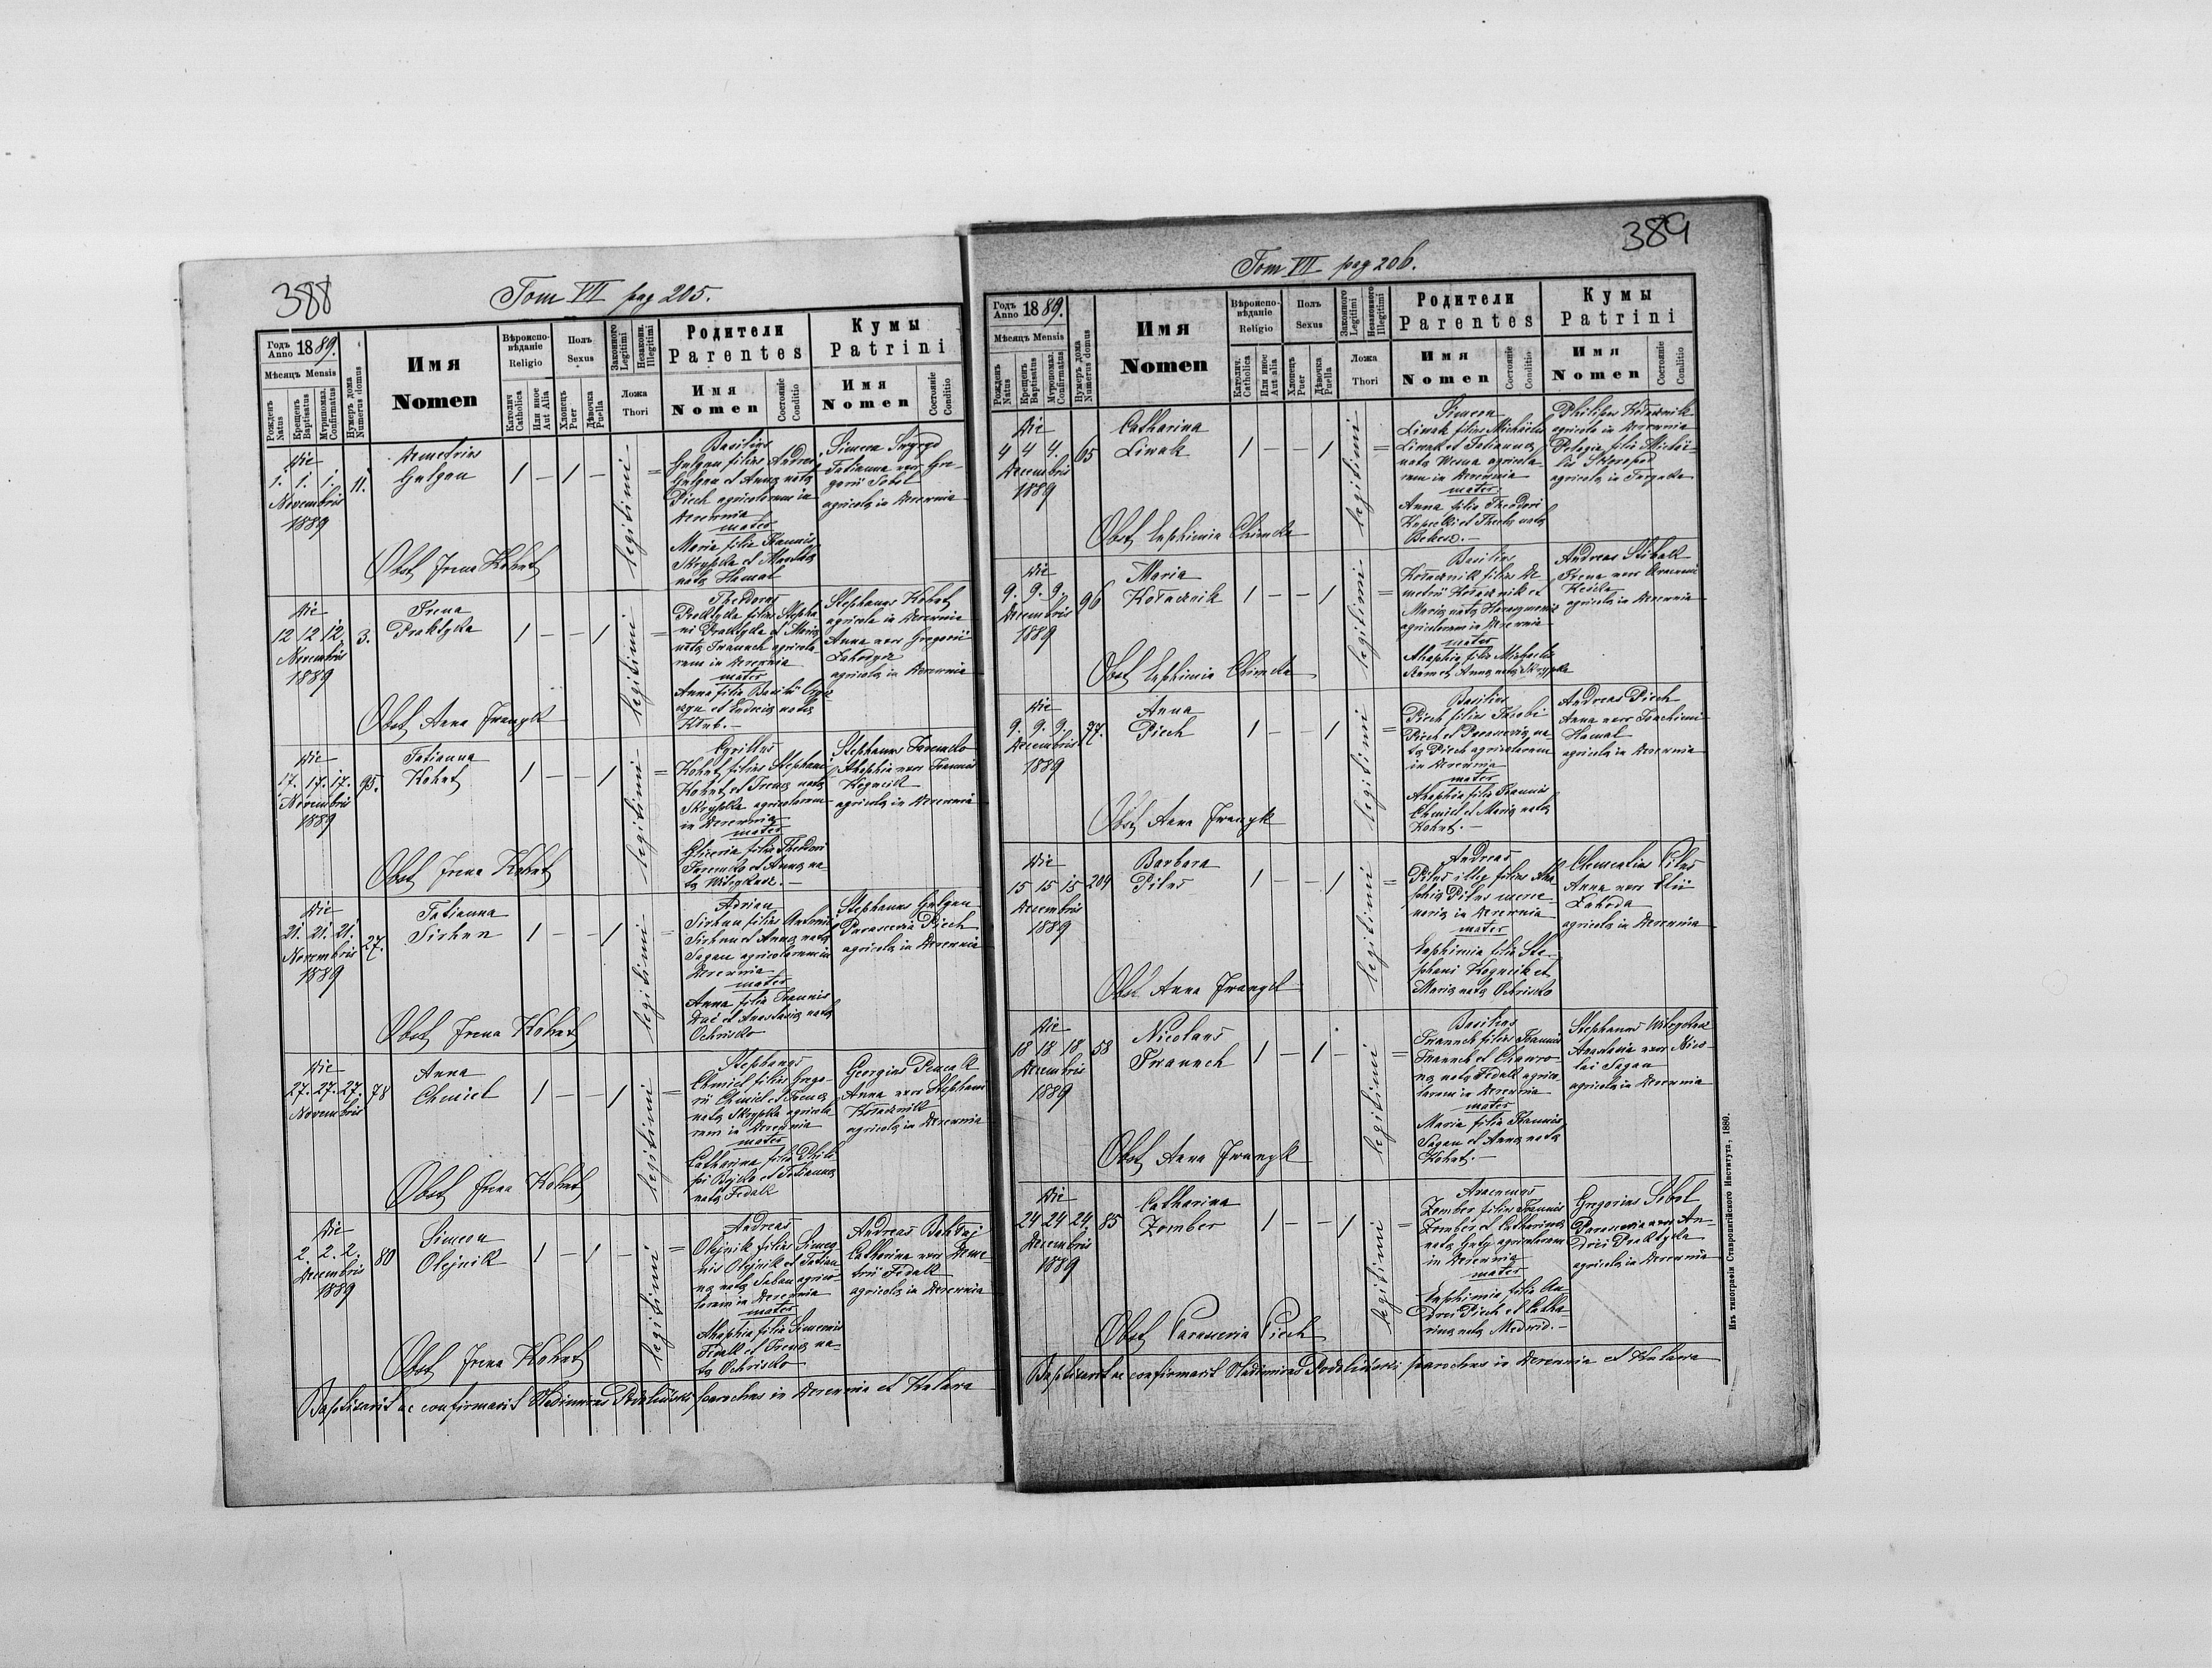 388
Tom VII pag 205.
Годъ Anno 1889.
Мѣсяцъ Mensis
Рожденъ Natus
Крещенъ Baptisatus
Мѵропомаз. Confirmatus
Нумеръ дома Numerus domus
Имя
Nomen
Вѣроиспо-
вѣданіе
Religio
Католич Catholica
Или иное Aut Alia
Полъ
Sexus
Хлопецъ Puer
Дѣвочка Puella
Законного Legitimi
Незаконн. Illegitimi
Ложа
Thori
Родители
Parentes
Имя
Nomen
Состояніе Conditio
Кумы
Patrini
Имя
Nomen
Состояніе Conditio
Die
1. 1. 1.
Novembris
1889
11.
Demetrius
Gulgan
1 — 1 —
legitimi
Basilius
Gulgan filius Andreä
Gulgan et Anna nata
Piech agricolarum in
Derewnia
mater
Maria filia Joannis
Skrypka et
nata Hamal
Simeon
Tatianna uxor Gre-
gorii Sobol
agricola in Derewnia
Obst Irena Kohut
Die
12 12 12.
Novembris
1889
3.
Irena
Praktyka
1 — — 1
legitimi
Theodorus
Praktyka filius Stepha
ni Praktyka et Maria
nata Iwanuch agricola-
rum in Derewnia
mater
Anna filia Basilii
et Eudocia nata
Stephanus Kohut
agricola in Derewnia
Anna uxor Gregorii
agricola in Derewnia
Obst Anna Iwanyk
Die
17. 17. 17.
Novembris
1889
95.
Tatianna
Kohut
1 — — 1
legitimi
Cyrillus
Kohut filius Stephani
Kohut et Irena nata
Skrypka agricolarum
in Derewnia
mater
Gliceria filia Theodori
Jaremko et Anna na
ta
Stephanus Jaremko
Ahaphia uxor Joannis
Kogucik
agricola in Derewnia
Obst Irena Kohut
Die
21. 21. 21.
Novembris
1889
27.
Tatianna
Sirhan
1 — — 1
legitimi
Adrian
Sirhan filius Antonii
Sirhan et Anna nata
Sagan agricolarum in
Derewnia
mater
Anna filia Joannis
et Anastasia nata
Ochrisko
Stephanus Gulgan
Parascevia Piech
agricola in Derewnia
Obst Irena Kohut
Die
27. 27. 27.
Novembris
78
Anna
Chmiel
1 — — 1
legitimi
Stephanus
Chmiel filius Grego-
rii Chmiel et Irena
nata Skrypka agricola
rum in Derewnia
mater
Catharina filia Phili
pi Bojko et Tatianna
nata Fedak
Georgius
Anna uxor Stephani
Kołacznik
agricola in Derewnia
Obst Irena Kohut
Die
2. 2. 2.
Decembris
1889
80
Simeon
Olejnik
1 — 1 —
legitimi
Andreas
Olejnik filius Simeo
nis Olejnik et Tatian-
na nata Saban agrico-
larum in Derewnia
mater
Ahaphia filia Simeonis
Fedak et Irena na-
ta Ochrisko
Andreas
Catharina uxor Deme
trii Fedak
agricola in Derewnia
Obst Irena Kohut
Baptisavit ac confirmavit Wladimirus Podoliński parochus in Derewnia et Kulawa
389
Tom VII pag 206.
Годъ Anno 1889.
Мѣсяцъ Mensis
Рожденъ Natus
Крещенъ Baptisatus
Мѵропомаз. Confirmatus
Нумеръ дома Numerus domus
Имя
Nomen
Вѣроиспо-
вѣданіе
Religio
Католич. Catholica
Или иное Aut alia
Полъ
Sexus
Хлопецъ Puer
Дѣвочка Puella
Законного Legitimi
Незаконного Illegitimi
Ложа
Thori
Родители
Parentes
Имя
Nomen
Состояніе Conditio
Кумы
Patrini
Имя
Nomen
Состояніе Conditio
Die
4 4 4.
Decembris
1889
65
Catharina
Liwak
1 — — 1
legitimi
Simeon
Liwak filius Michaelis
Liwak et Tatianna
nata Wesna agricola-
rum in Derewnia
mater
Anna filia Theodori
et Thecla nata
Philipus Kołacznik
agricola in Derewnia
Pelagia filia Michae-
lis
agricola in
Obst Euphimia Chimcka
Die
9. 9. 9.
Decembris
1889
96
Maria
Kołacznik
1 — — 1
legitimi
Basilius
Kołacznik filius De
metrii Kołacznik et
Maria nata
agricolarum in Derewnia
mater
Ahaphia filia Michaelis
et Anna nata Skrypka
Andreas
Irena uxor
agricola in Derewnia
Obst Euphimia Chimcka
Die
9. 9. 9.
Decembris
1889
77.
Anna
Piech
1 — — 1
legitimi
Basilius
Piech filius Jacobi
Piech et Parascevia na-
ta Piech agricolarum
in Derewnia
mater
Ahaphia filia Joannis
Chmiel et Maria nata
Kohut.—
Andreas Piech
Anna uxor Joachimi
Hamal
agricola in Derewnia
Obst Anna Iwanyk
Die
15 15 15
Decembris
1889
204
Barbara
Pilus
1 — — 1
legitimi
Andreas
Pilus illeg filius Aha
phia Pilus
in Derewnia
mater
Euphimia filia Ste-
phani Kogucik et
Maria nata Ochrisko
Clementius Pilus
Anna uxor Elii
Zahoda
agricola in Derewnia
Obst Anna Iwanyk
Die
18 18 18
Decembris
1889
58
Nicolaus
Iwanuch
1 — 1 —
legitimi
Basilius
Iwanuch filius Joannis
Iwanuch et Chawro-
na nata Fedak agrico-
larum in Derewnia
mater
Maria filia Joannis
Sagan et Anna nata
Kohut.—
Stephanus
Anastasia uxor Nico-
lai Sagan
agricola in Derewnia
Obst Anna Iwanyk
Die
24 24 24.
Decembris
1889
85
Catharina
Zomber
1 — — 1
legitimi
Zomber filius Joannis
Zomber et Catharina
nata agricolarum
in Derewnia
mater
Euphimia filia An
drei Piech et Catha
rina nata Medwid.—
Gregorius Sobol
Parascevia uxor An-
drei Praktyka
agricola in Derewnia
Obst Parascevia Piech
Baptisavit ac confirmavit Wladimirus Podoliński parochus in Derewnia et Kulawa
Изъ типографіи Ставропигійского Института, 1880.